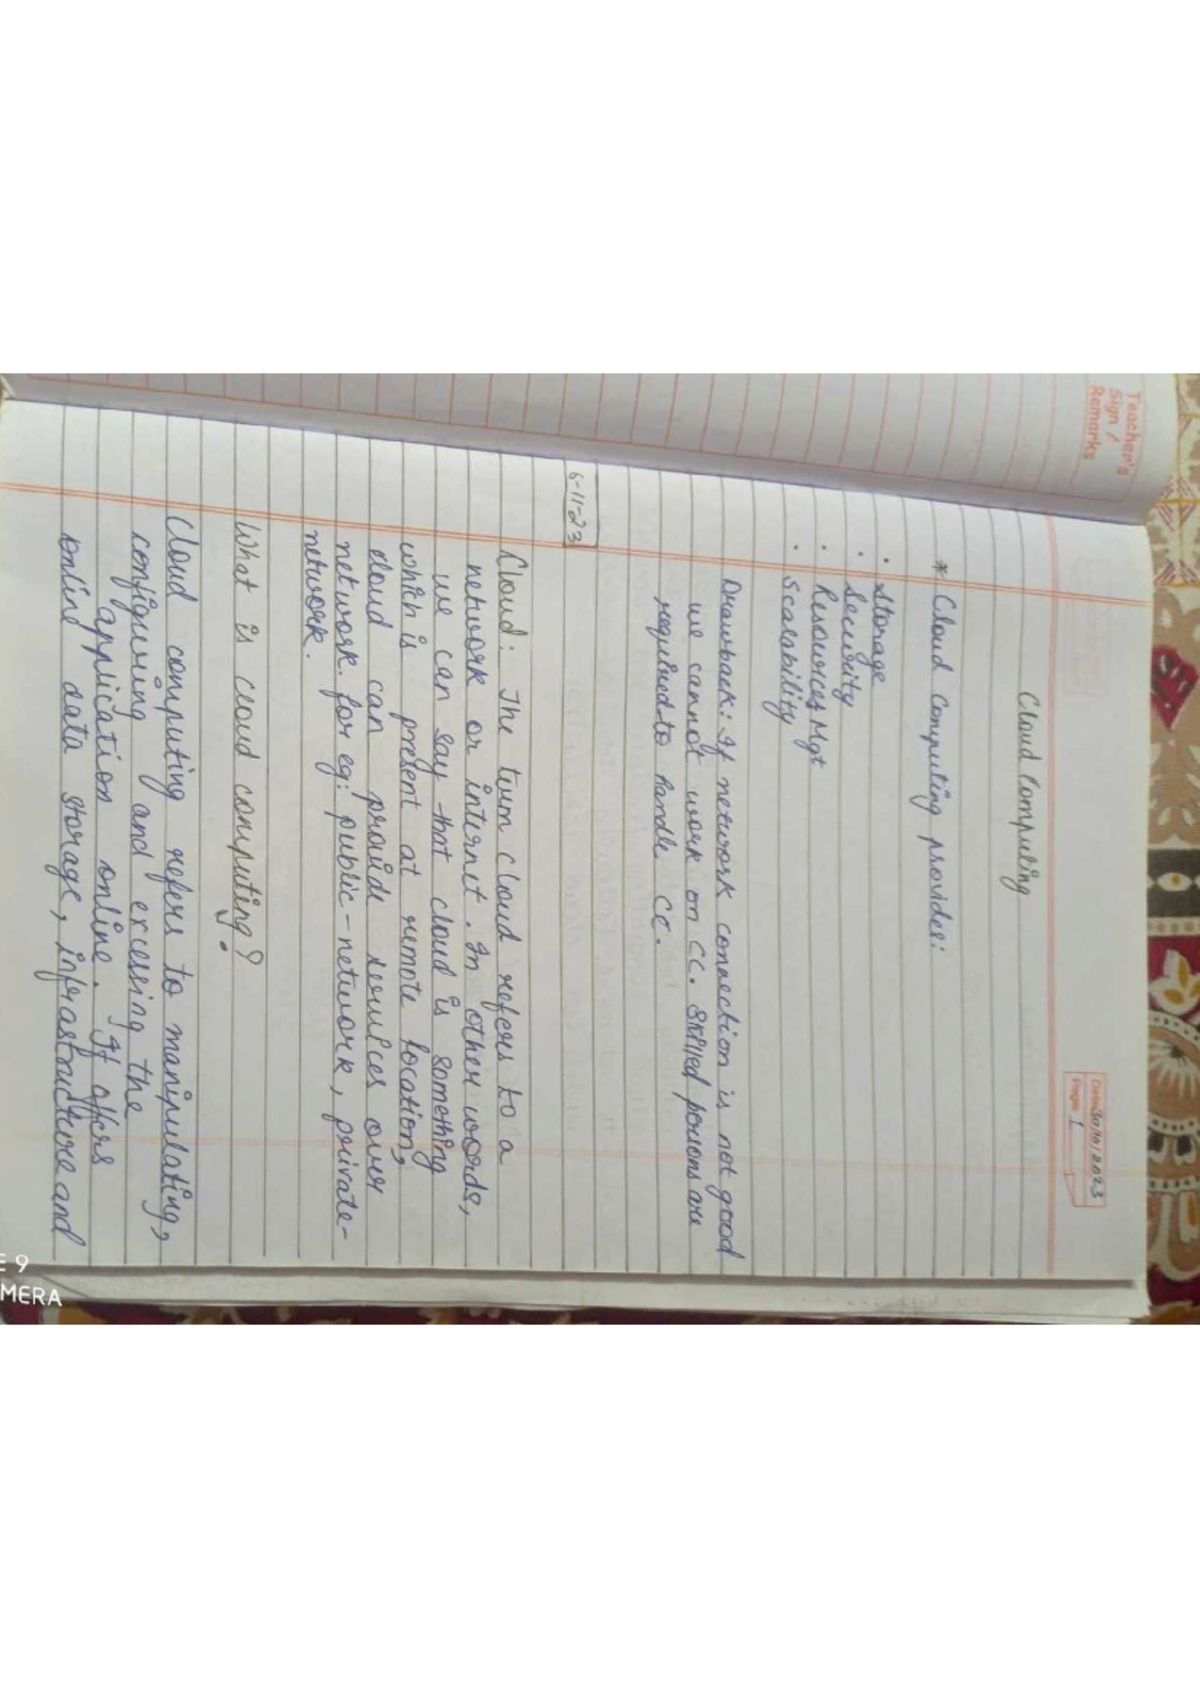 Teacher's
Sign /
Remarks
Date 30/10/2023
Page 1
Cloud Computing
* Cloud Computing provides:
• Storage
• Security
• Resources Mgt
• Scalability
Drawback: If network connection is not good
we cannot work on CC. Skilled persons are
required to handle CC.
6-11-23
Cloud: The turn cloud refers to a
network or internet. In other words,
we can say that cloud is something
which is present at remote location,
cloud can provide services over
network. for eg: public-network, private-
network.
What is cloud computing?
Cloud computing refers to manipulating,
configuring and excessing the
application online. It offers
online data storage, infrastructure and
E 9
MERA